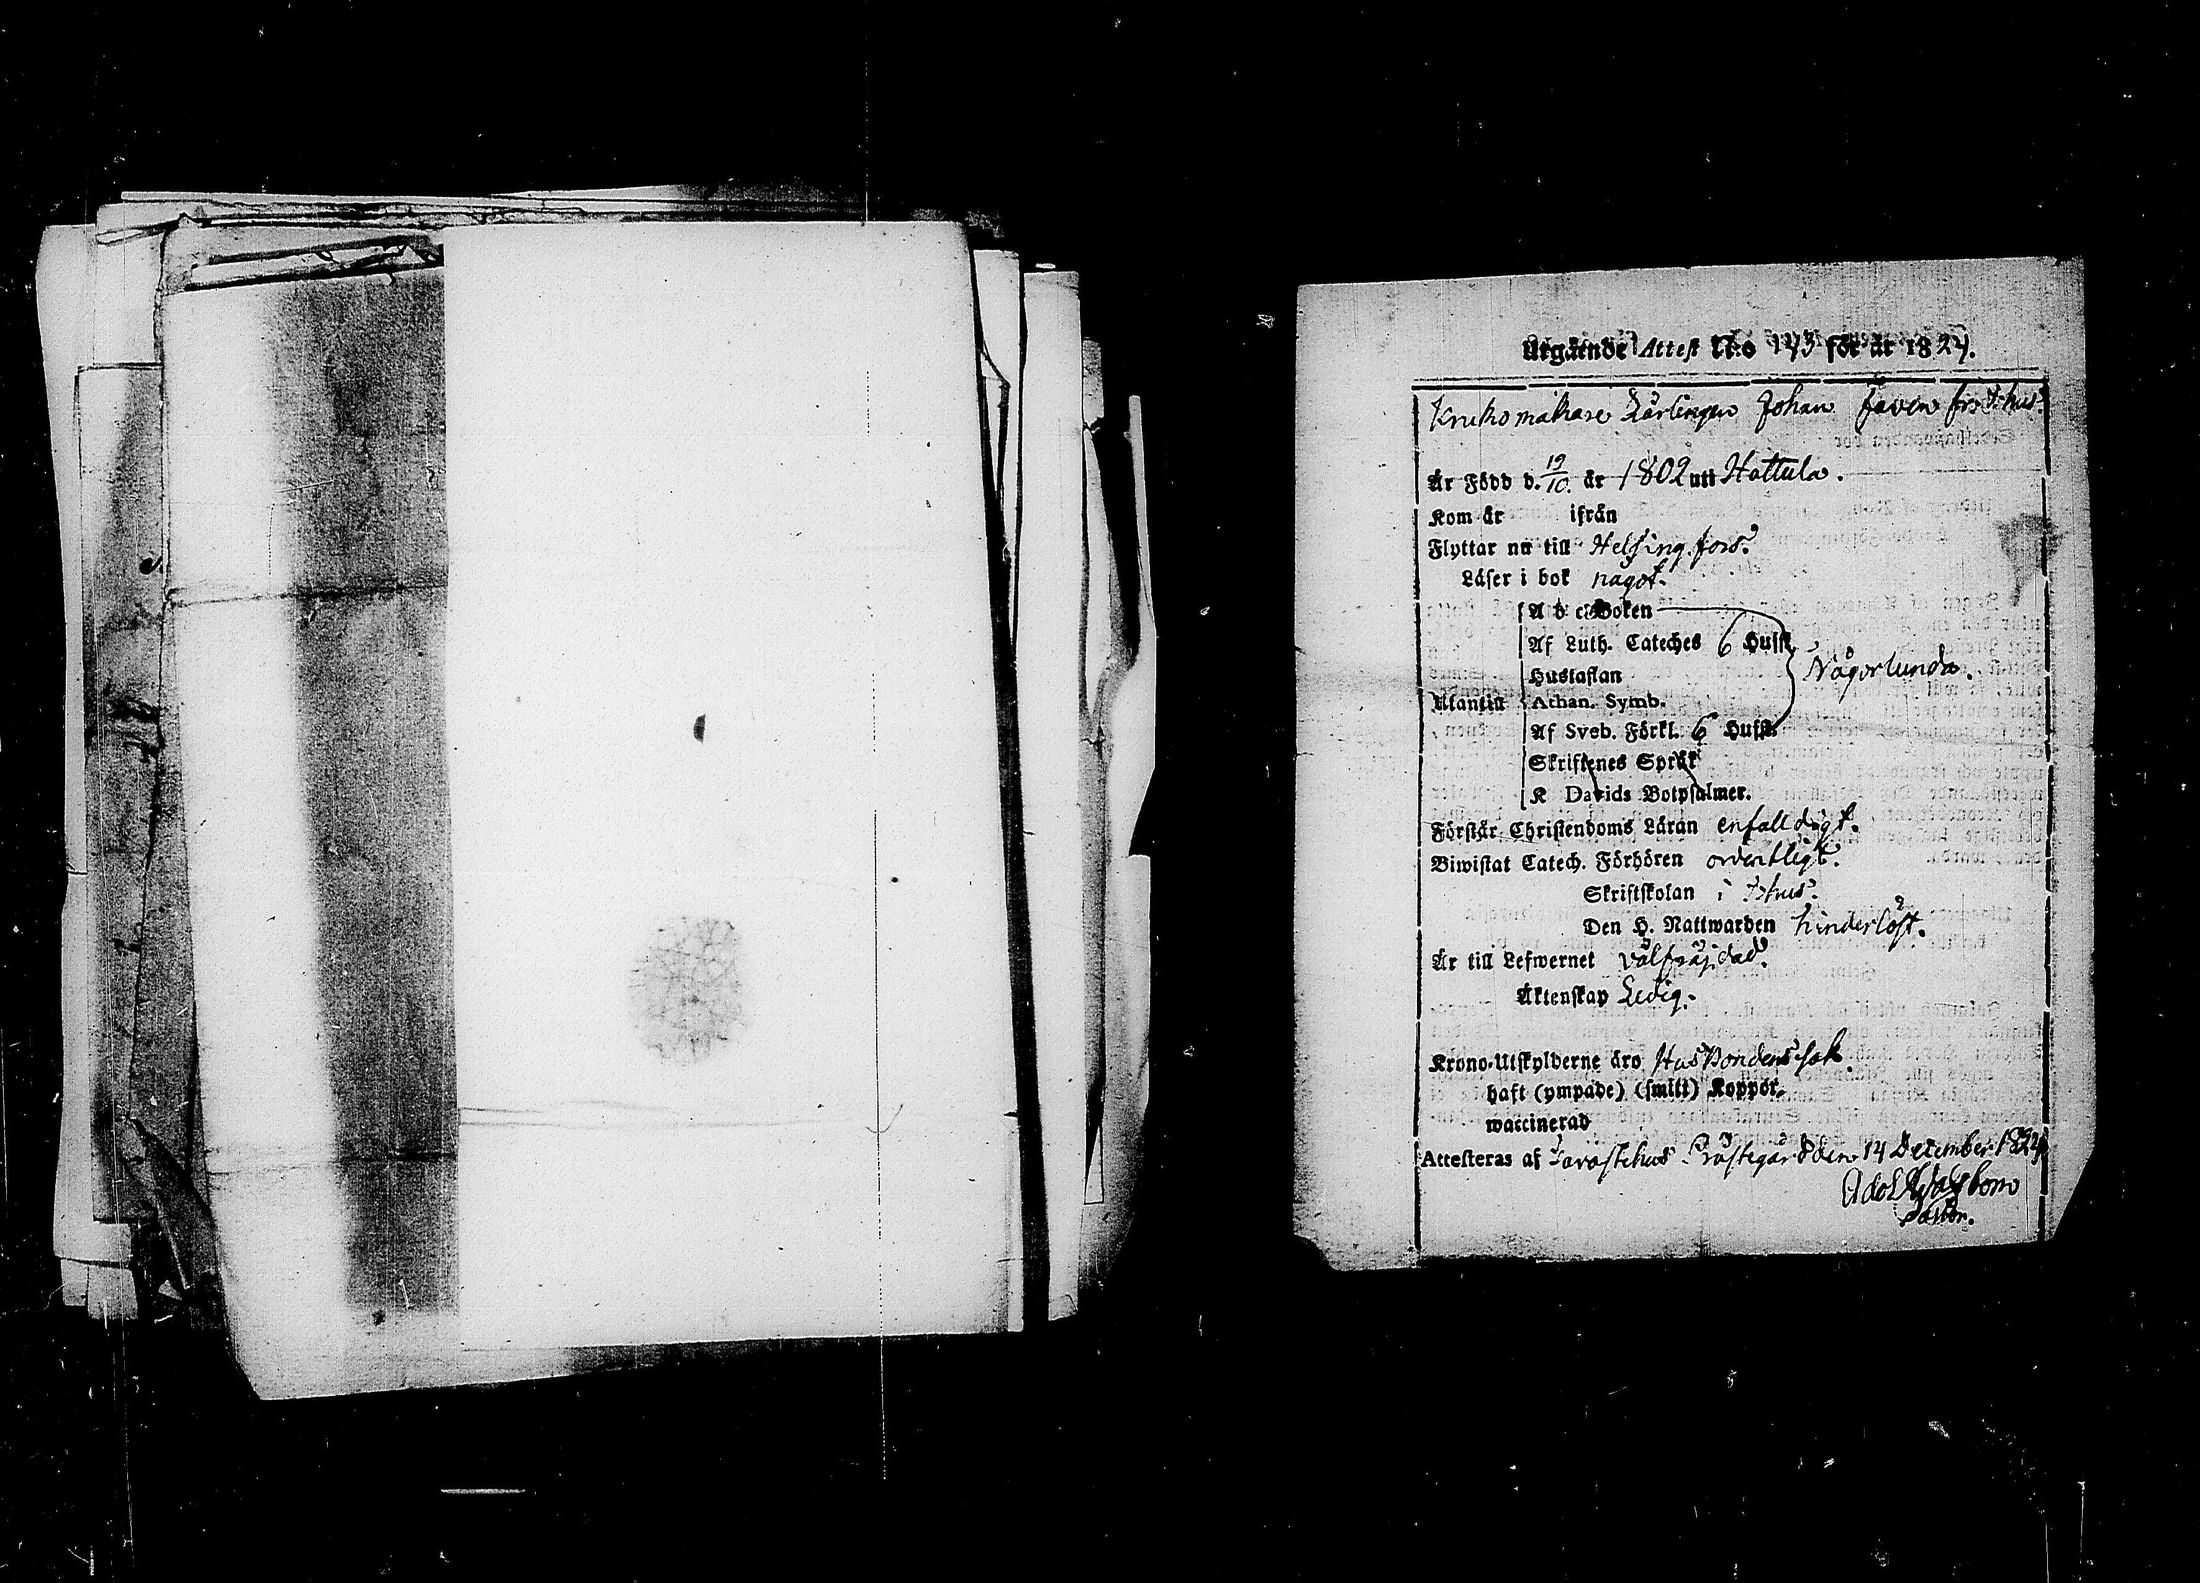 Utgående Attest N:o 143 för år 1824.
Krukomakare Lärlingen Johan Faven frn T:hus.
Är Född d. 19/10. år 1802 uti Hattula.
Kom år ifrån
Flyttar nu till Helsingfors.
Läser i bok något.
A b c Boken
Af Luth. Cateches 6 Hufst.
Någorlunda.
Hustaflan
Utantill Athan. Symb.
Af Sveb. Förkl. 6 Hufst.
Skriftenes Språk
K Davids Botpsalmer.
Förstår Christendoms Läran enfalldigt.
Biwistat Catech. Förhören ordentligt.
Skriftskolan i T:hus.
Den H. Nattwarden hinderlöst.
Är till Lefwernet välfräjdad.
Äktenskap Ledig.
Krono-Utskylderne äro Husbondens sak.
haft (ympade) (smitt) Koppor.
waccinerad
Attesteras af Tavastehus Prästegård den 14 December 1824
Adolf
Pastor.